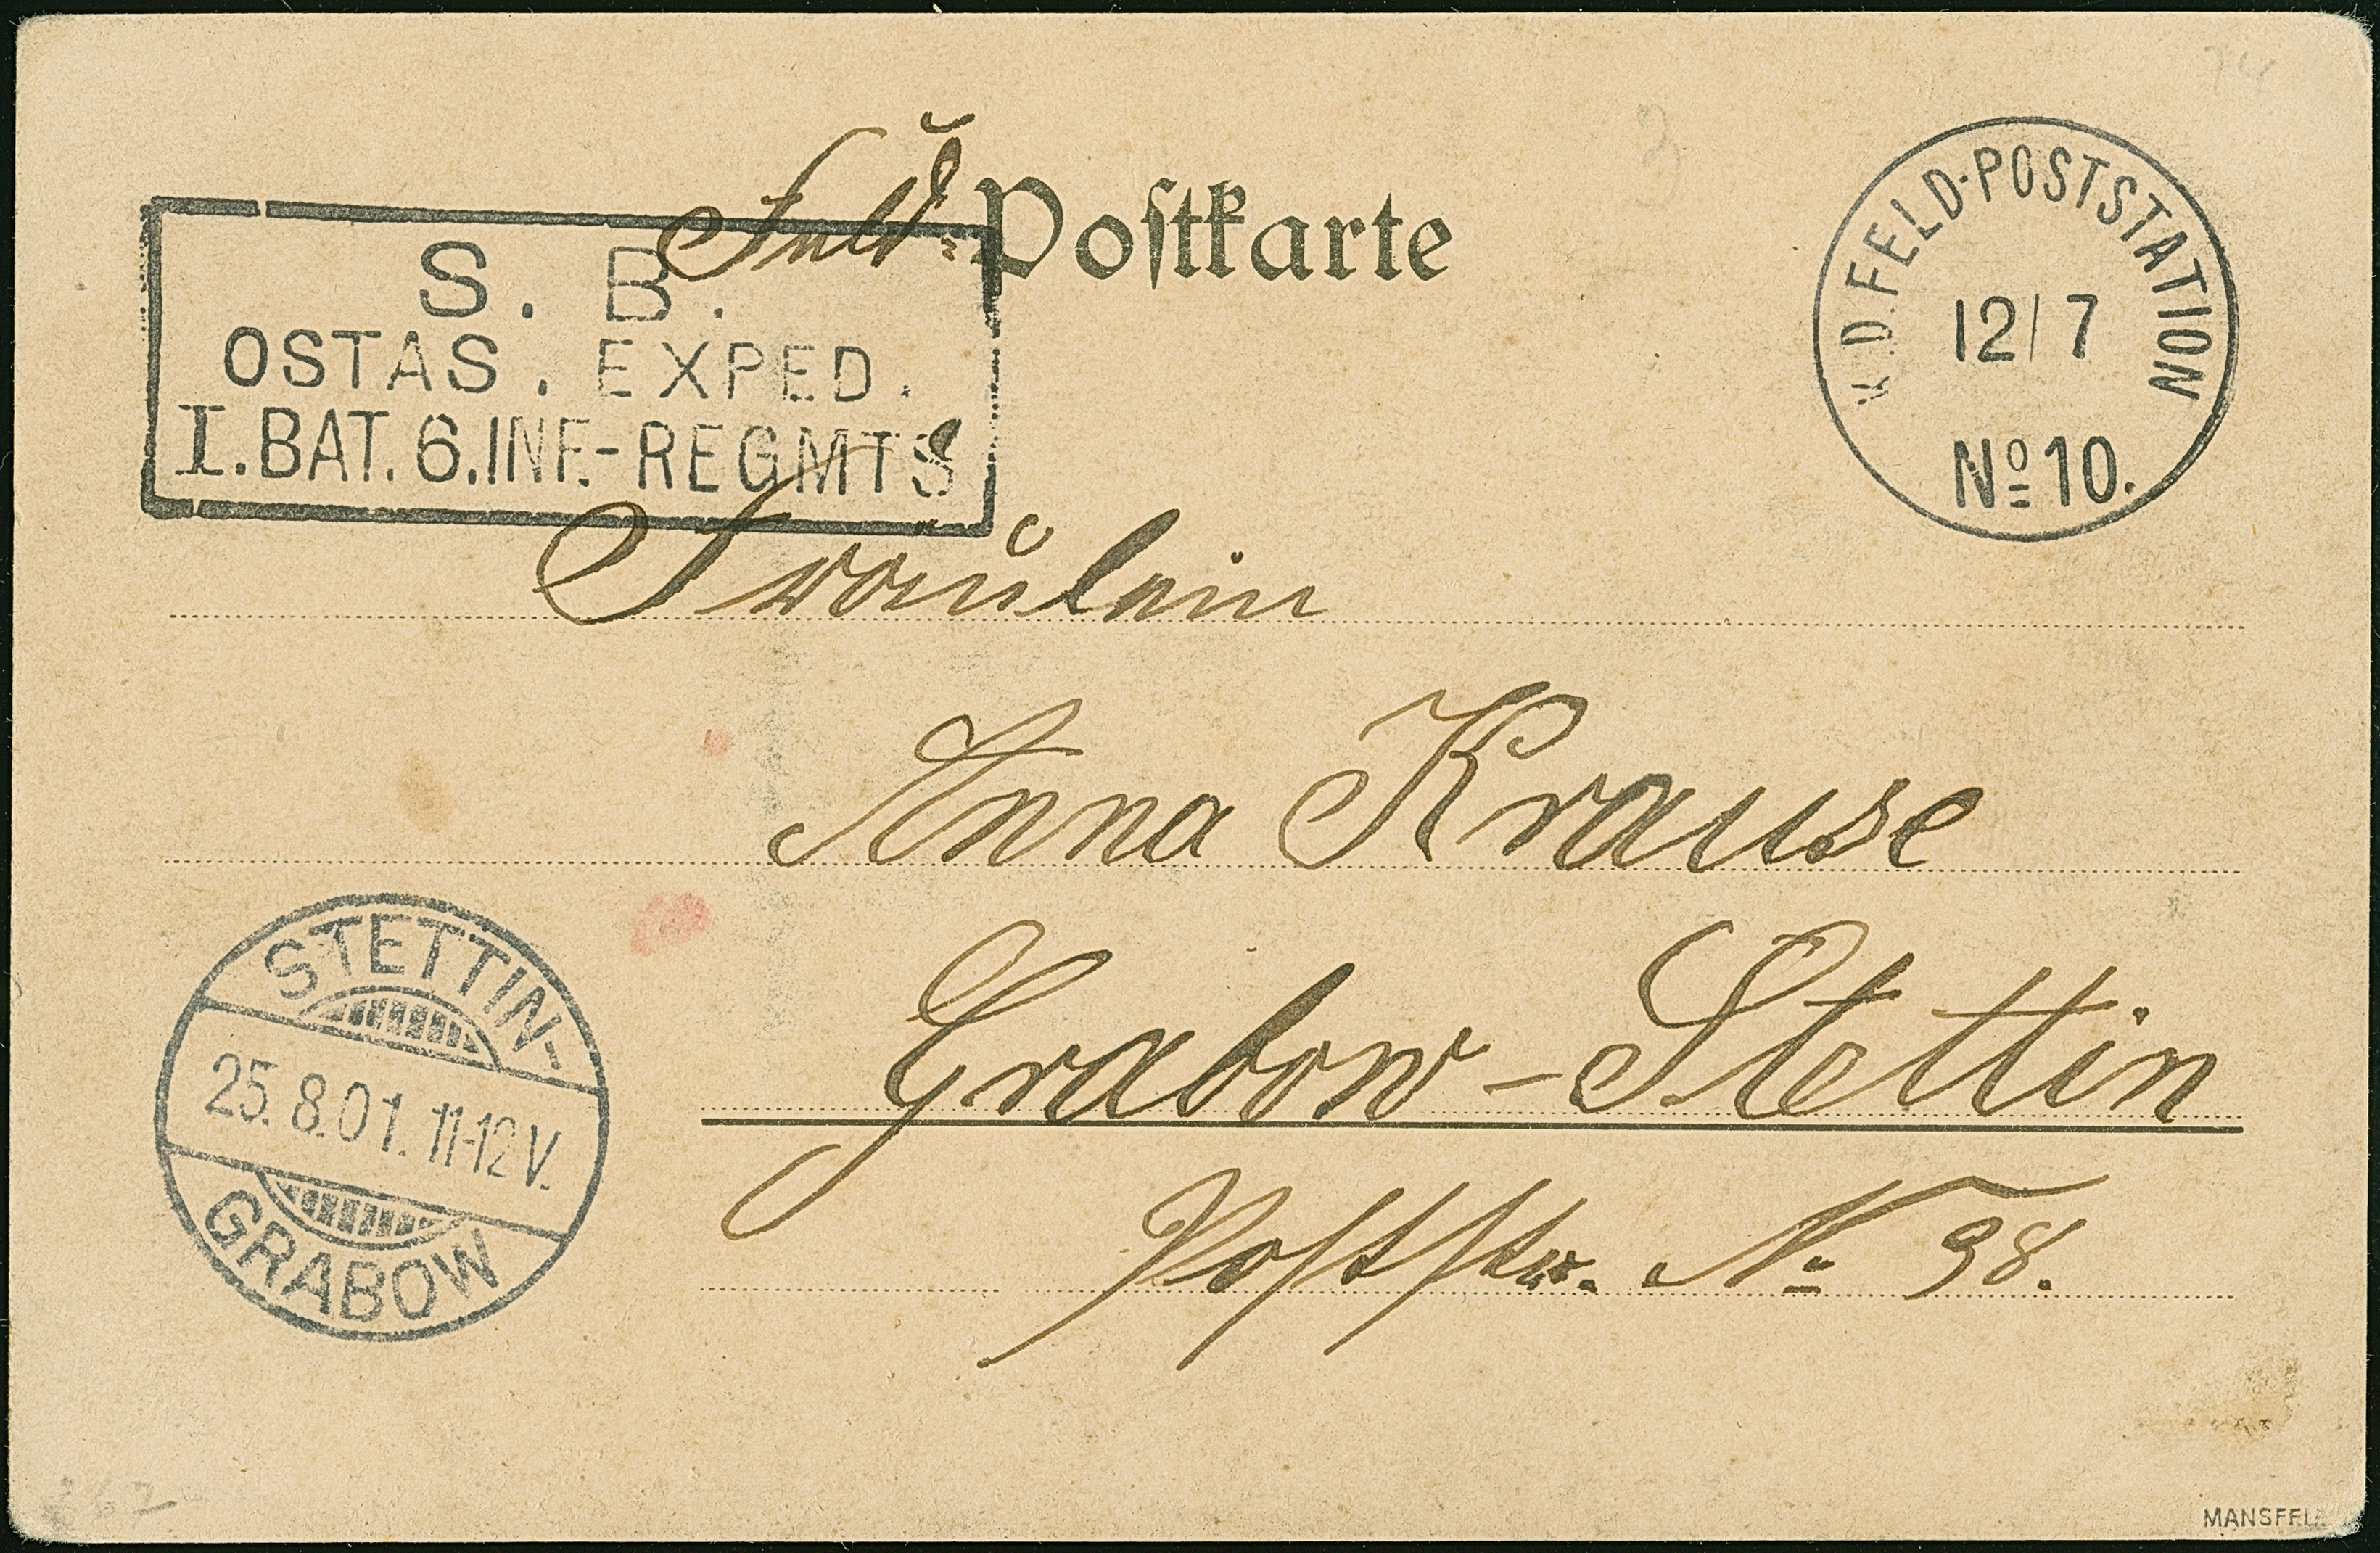 Feld-Postkarte
S. B.
OSTAS. EXPED.
I. BAT. 6. INF.-REGMTS
K.D. FELD-POSTSTATION
12/7
No 10.
Fräulein
Anna Krause
Grabow-Stettin
Poststr. No 38.
STETTIN-
25.8.01. 11-12 V.
GRABOW
262
MANSFELD